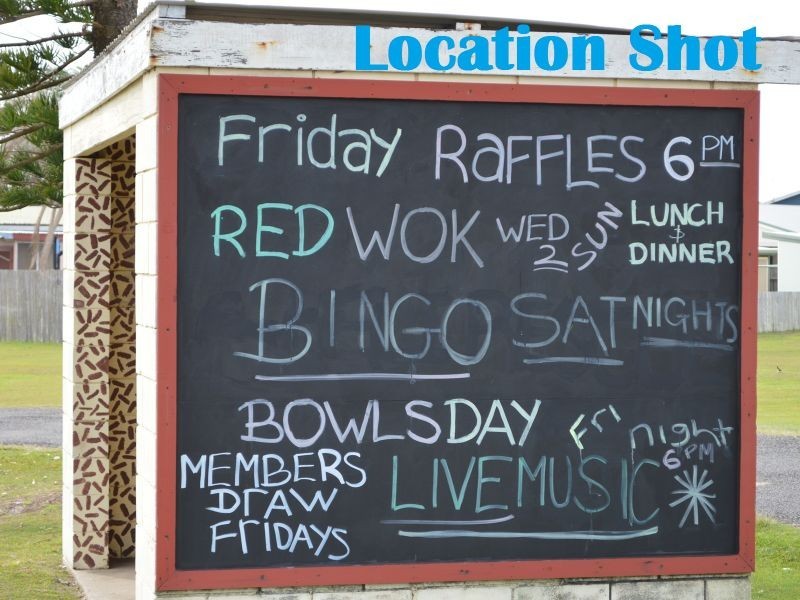 Location Shot
Friday RAFFLES 6 PM
RED WOK WED 2 SUN LUNCH & DINNER
BINGO SAT NIGHTS
BOWLSDAY Fri night 6PM
MEMBERS DrAW FriDAYS
LIVE MUSIC